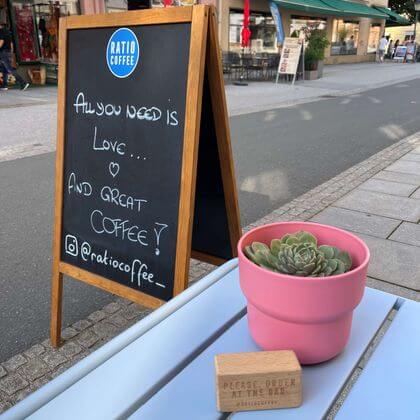 RATIO
COFFEE
ALL YOU NEED IS
LOVE...
AND GREAT
COFFEE!
@ratiocoffee_
PLEASE ORDER
AT THE BAR
@RATIOCOFFEE_